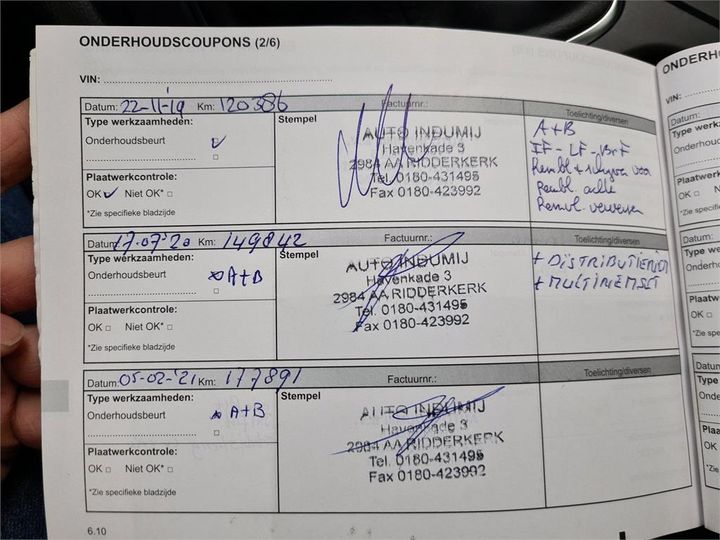 ONDERHOUDSCOUPONS (2/6)
VIN:
Datum: 22-11-'19 Km: 120386 Factuurnr.:
Type werkzaamheden:
Onderhoudsbeurt
Stempel
AUTO INDUMIJ
Havenkade 3
2984 AA RIDDERKERK
Tel. 0180-431495
Fax 0180-423992
Toelichting/diversen
A+B
IF - LF - BrF
Rembl + voor
Rembl. achter
Plaatwerkcontrole:
OK Niet OK*
*Zie specifieke bladzijde
Datum: 17-07-'20 Km: 149842 Factuurnr.:
Type werkzaamheden:
Onderhoudsbeurt A+B
Stempel
AUTO INDUMIJ
Havenkade 3
2984 AA RIDDERKERK
Tel. 0180-431495
Fax 0180-423992
Toelichting/diversen
+ DISTRIBUTIERIEM
+ MULTIRIEMSET
Plaatwerkcontrole:
OK Niet OK*
*Zie specifieke bladzijde
Datum: 05-02-'21 Km: 177891 Factuurnr.:
Type werkzaamheden:
Onderhoudsbeurt A+B
Stempel
AUTO INDUMIJ
Havenkade 3
2984 AA RIDDERKERK
Tel. 0180-431495
Fax 0180-423992
Toelichting/diversen
Plaatwerkcontrole:
OK Niet OK*
*Zie specifieke bladzijde
6.10
ONDERH
VIN:
Datum:
Type werk
Onderhou
Plaatw
OK
*Zie sp
Datu
Type
Onde
Plaa
OK
*Zie
Da